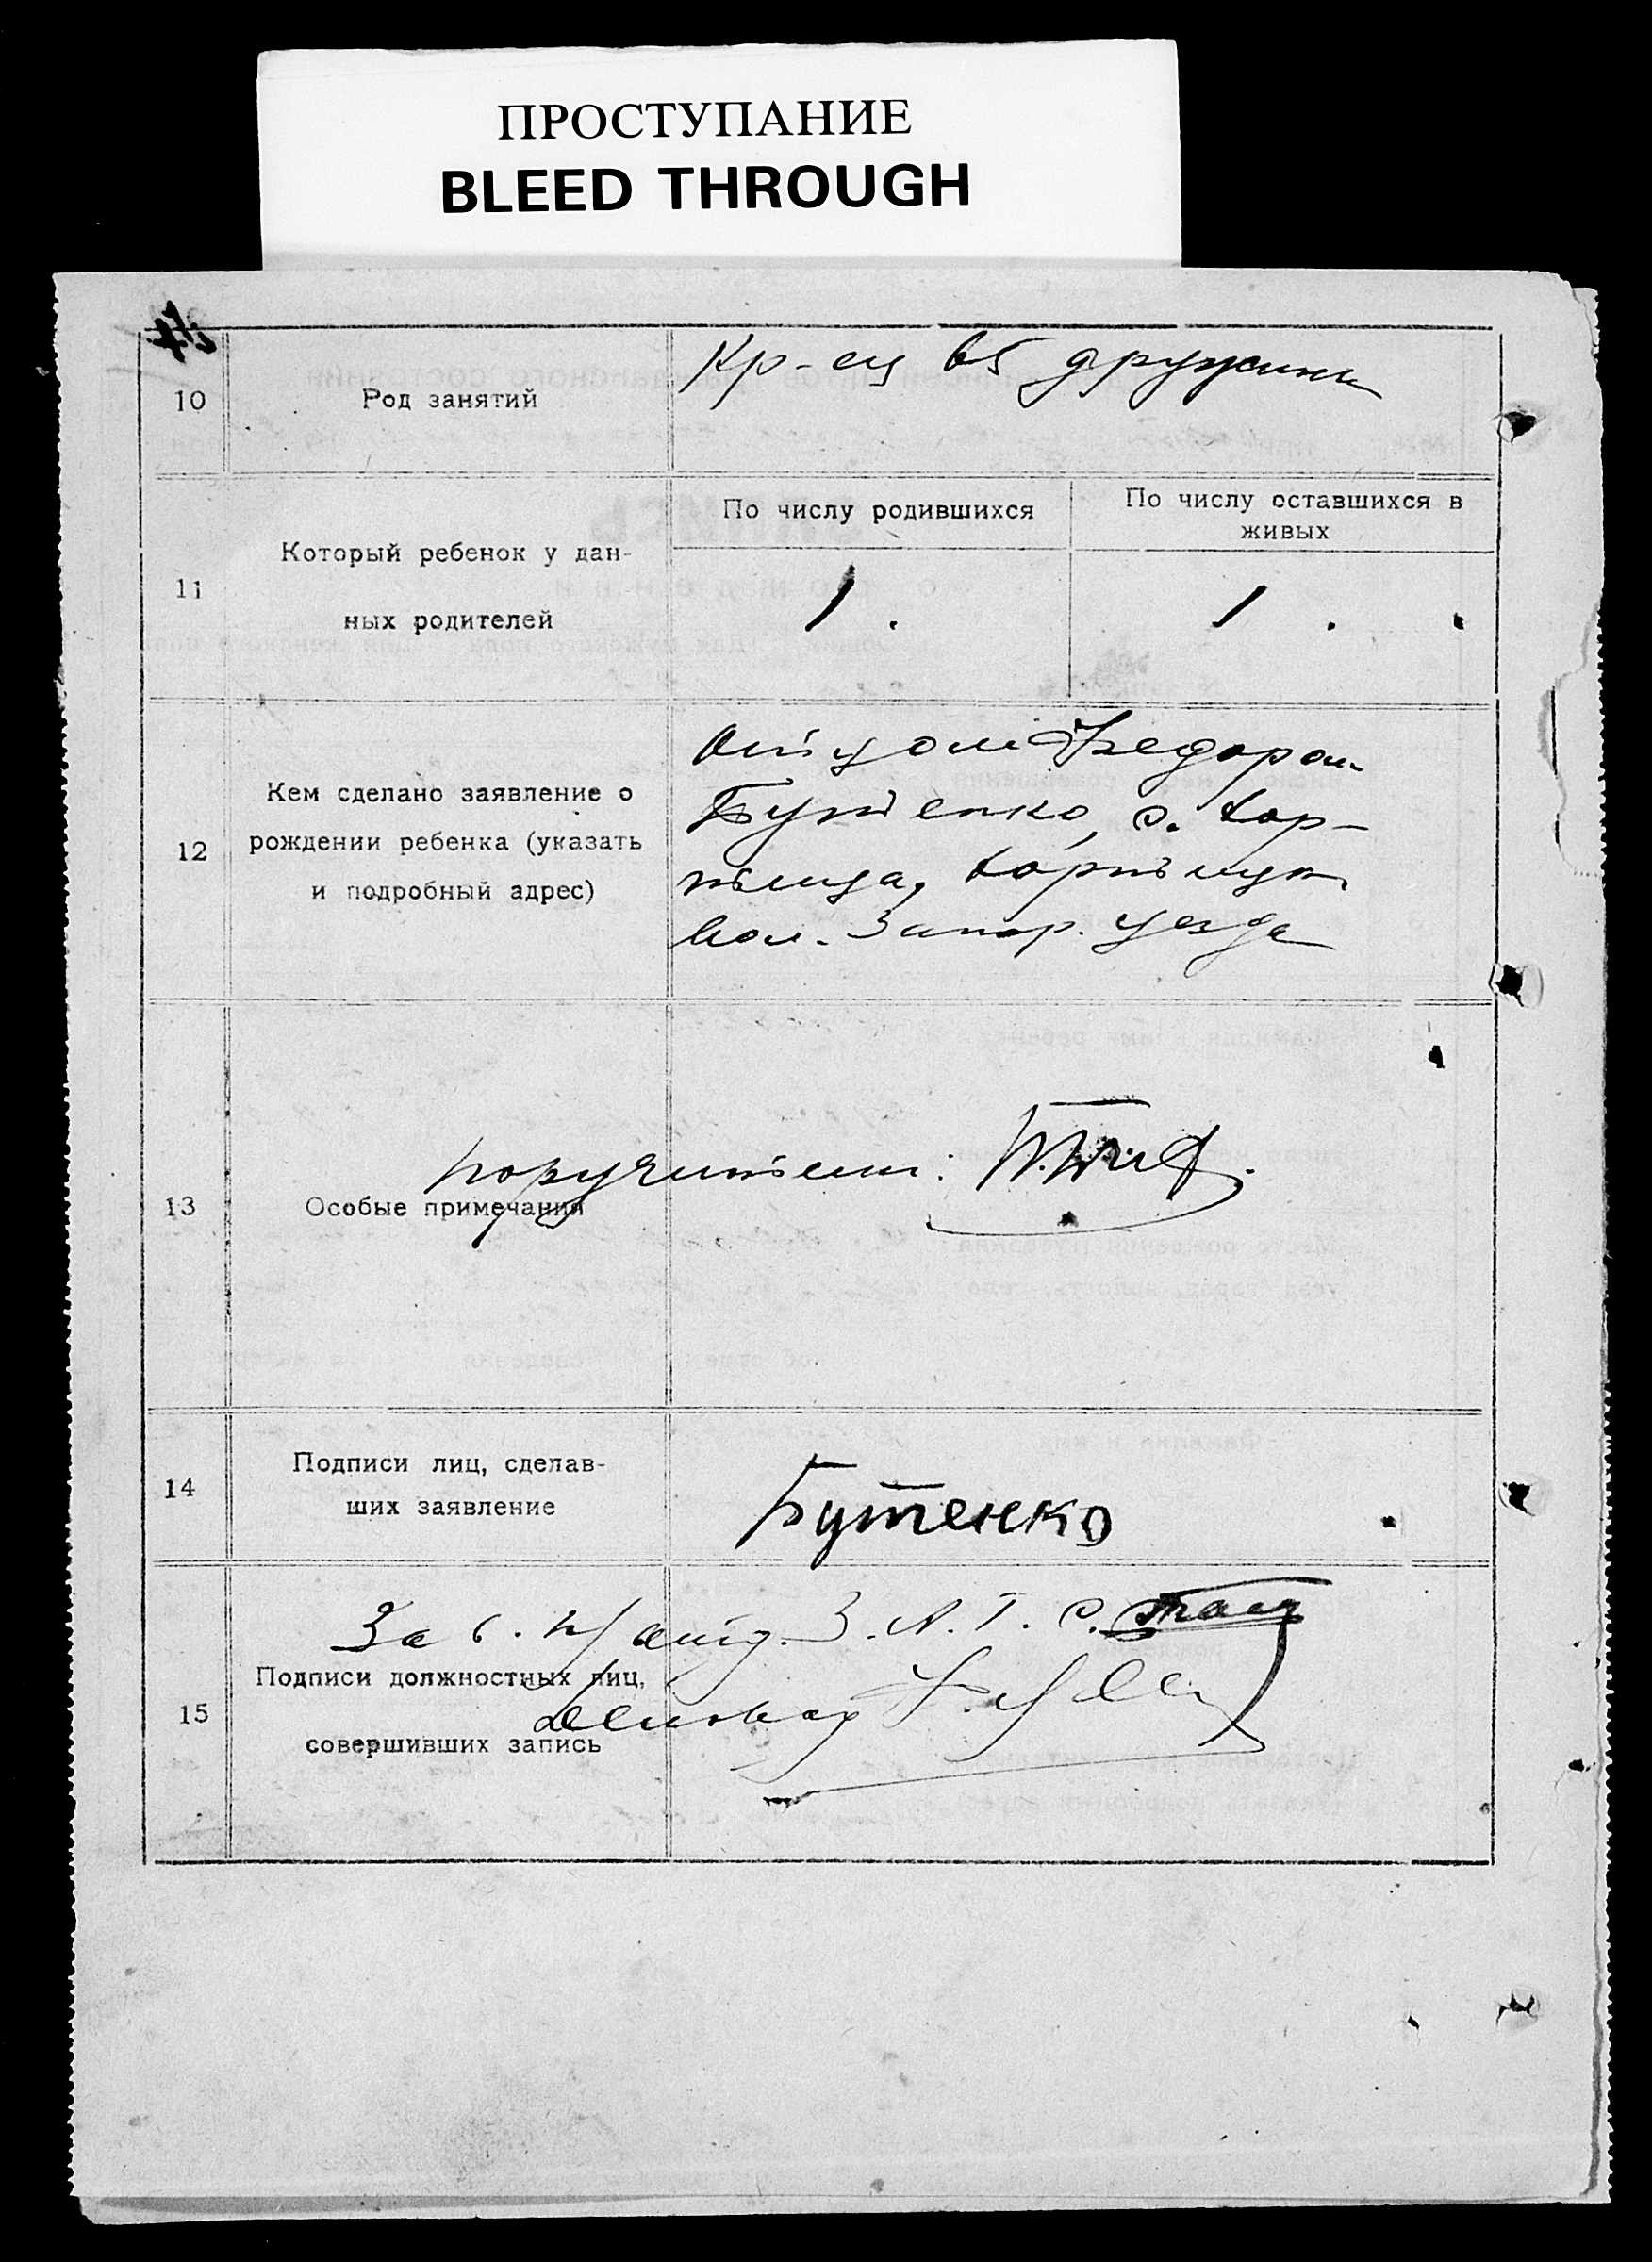 ПРОСТУПАНИЕ
BLEED THROUGH
10
Род занятий
Кр-ец в дружины
11
Который ребенок у дан-
ных родителей
По числу родившихся
По числу оставшихся в
живых
1.
1.
12
Кем сделано заявление о
рождении ребенка (указать
и подробный адрес)
Отцом Федором
Бутенко, с. Хор-
тица, Хортицк
вол. Запор. уезда
13
Особые примечания
поручители:
14
Подписи лиц, сделав-
ших заявление
Бутенко
15
Подписи должностных лиц,
совершивших запись
Зав. п/отд. З.А.Г.С.